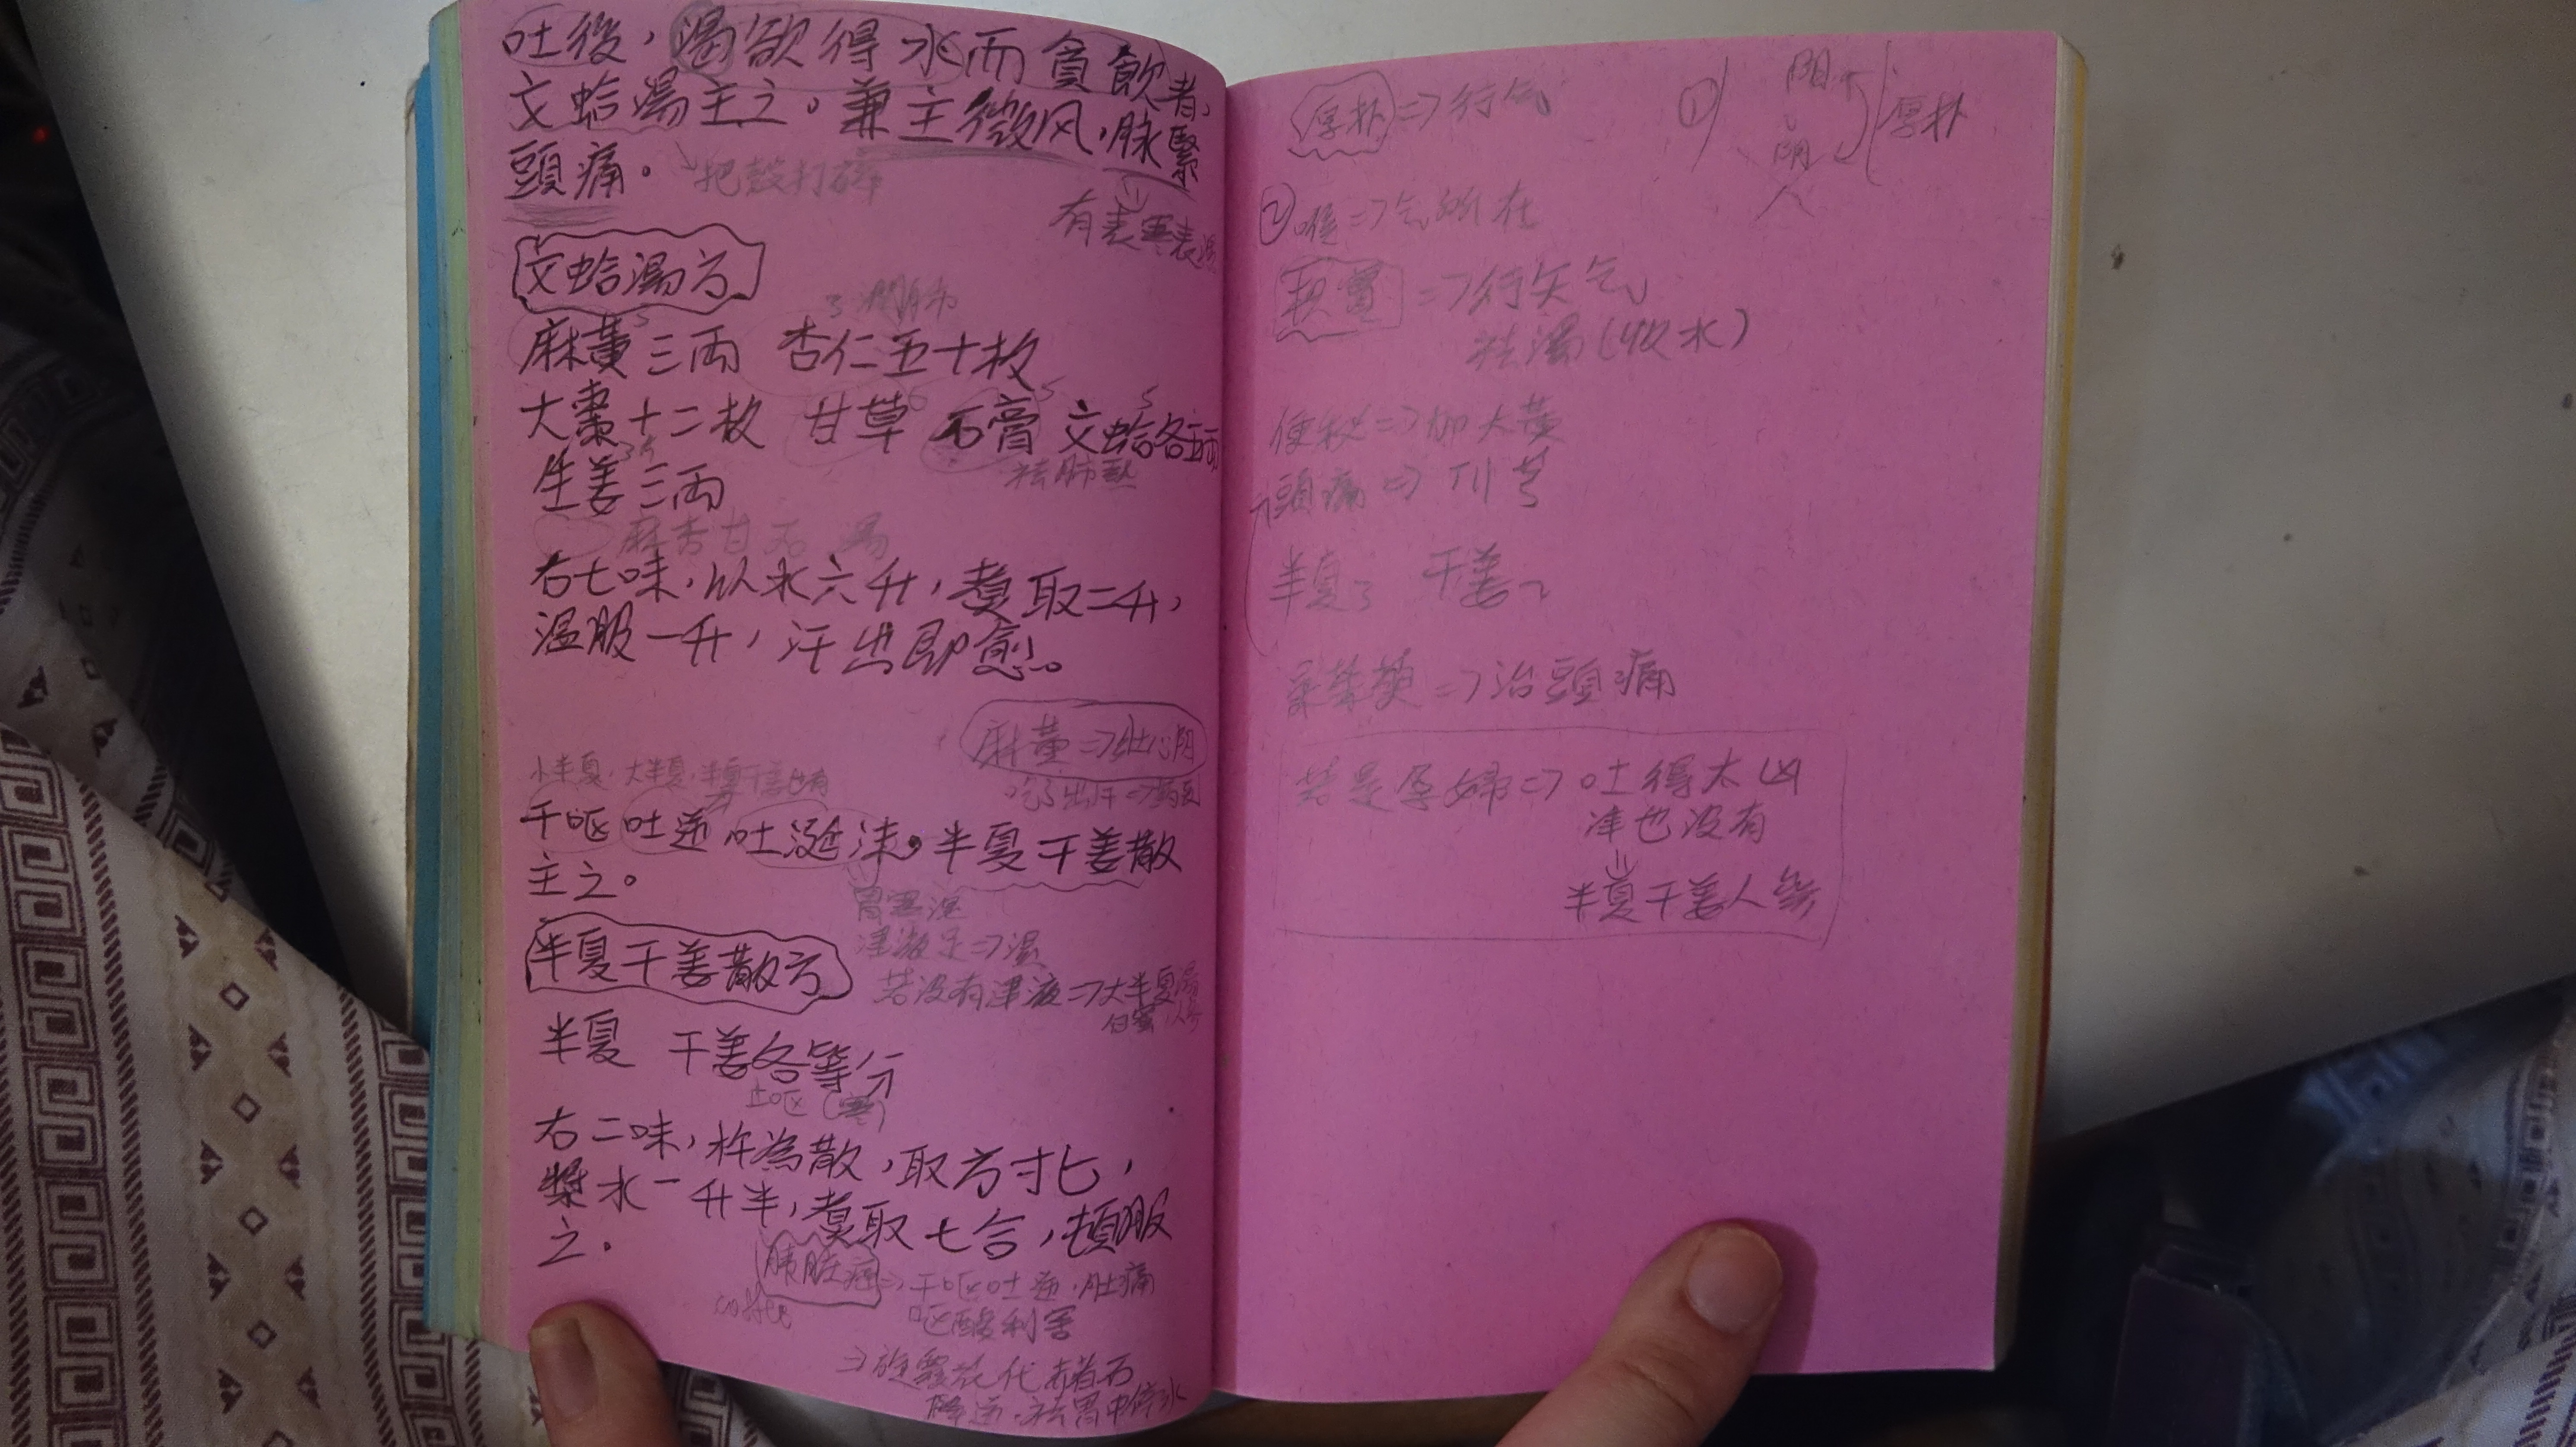 吐後，渴欲得水而貪飲者，
文蛤湯主之。兼主微风，脉緊
頭痛。
把殼打碎
有表寒表
文蛤湯方
潤肺
麻黃三両 杏仁五十枚
大棗十二枚 甘草 石膏 文蛤各五両
生姜三両
祛肺熱
麻杏甘石湯
右七味，以水六升，煮取二升，
温服一升，汗出即愈。
麻黃=>壯心陽
小半夏，大半夏，半夏干姜也有
吃了出汗=>
干呕吐逆吐涎沫，半夏干姜散
主之。
胃寒湿
津液足=>湿
若没有津液=>大半夏湯
白蜜 人参
半夏干姜散方
半夏 干姜各等分
止呕(寒)
右二味，杵為散，取方寸匕，
漿水一升半，煮取七合，頓服
之。
胰脏癌=>干呕吐逆，肚痛
coffee
呕酸利害
=>旋覆花代赭石
降逆，祛胃中停水
厚朴=>行气
① 阳 阴 厚朴
② 喉=>气所在
枳實=>行矢气
祛湿(收水)
便秘=>加大黄
頭痛=>川芎
半夏3 干姜2
吴茱萸=>治頭痛
若是孕婦=>吐得太凶
津也没有
半夏干姜人参